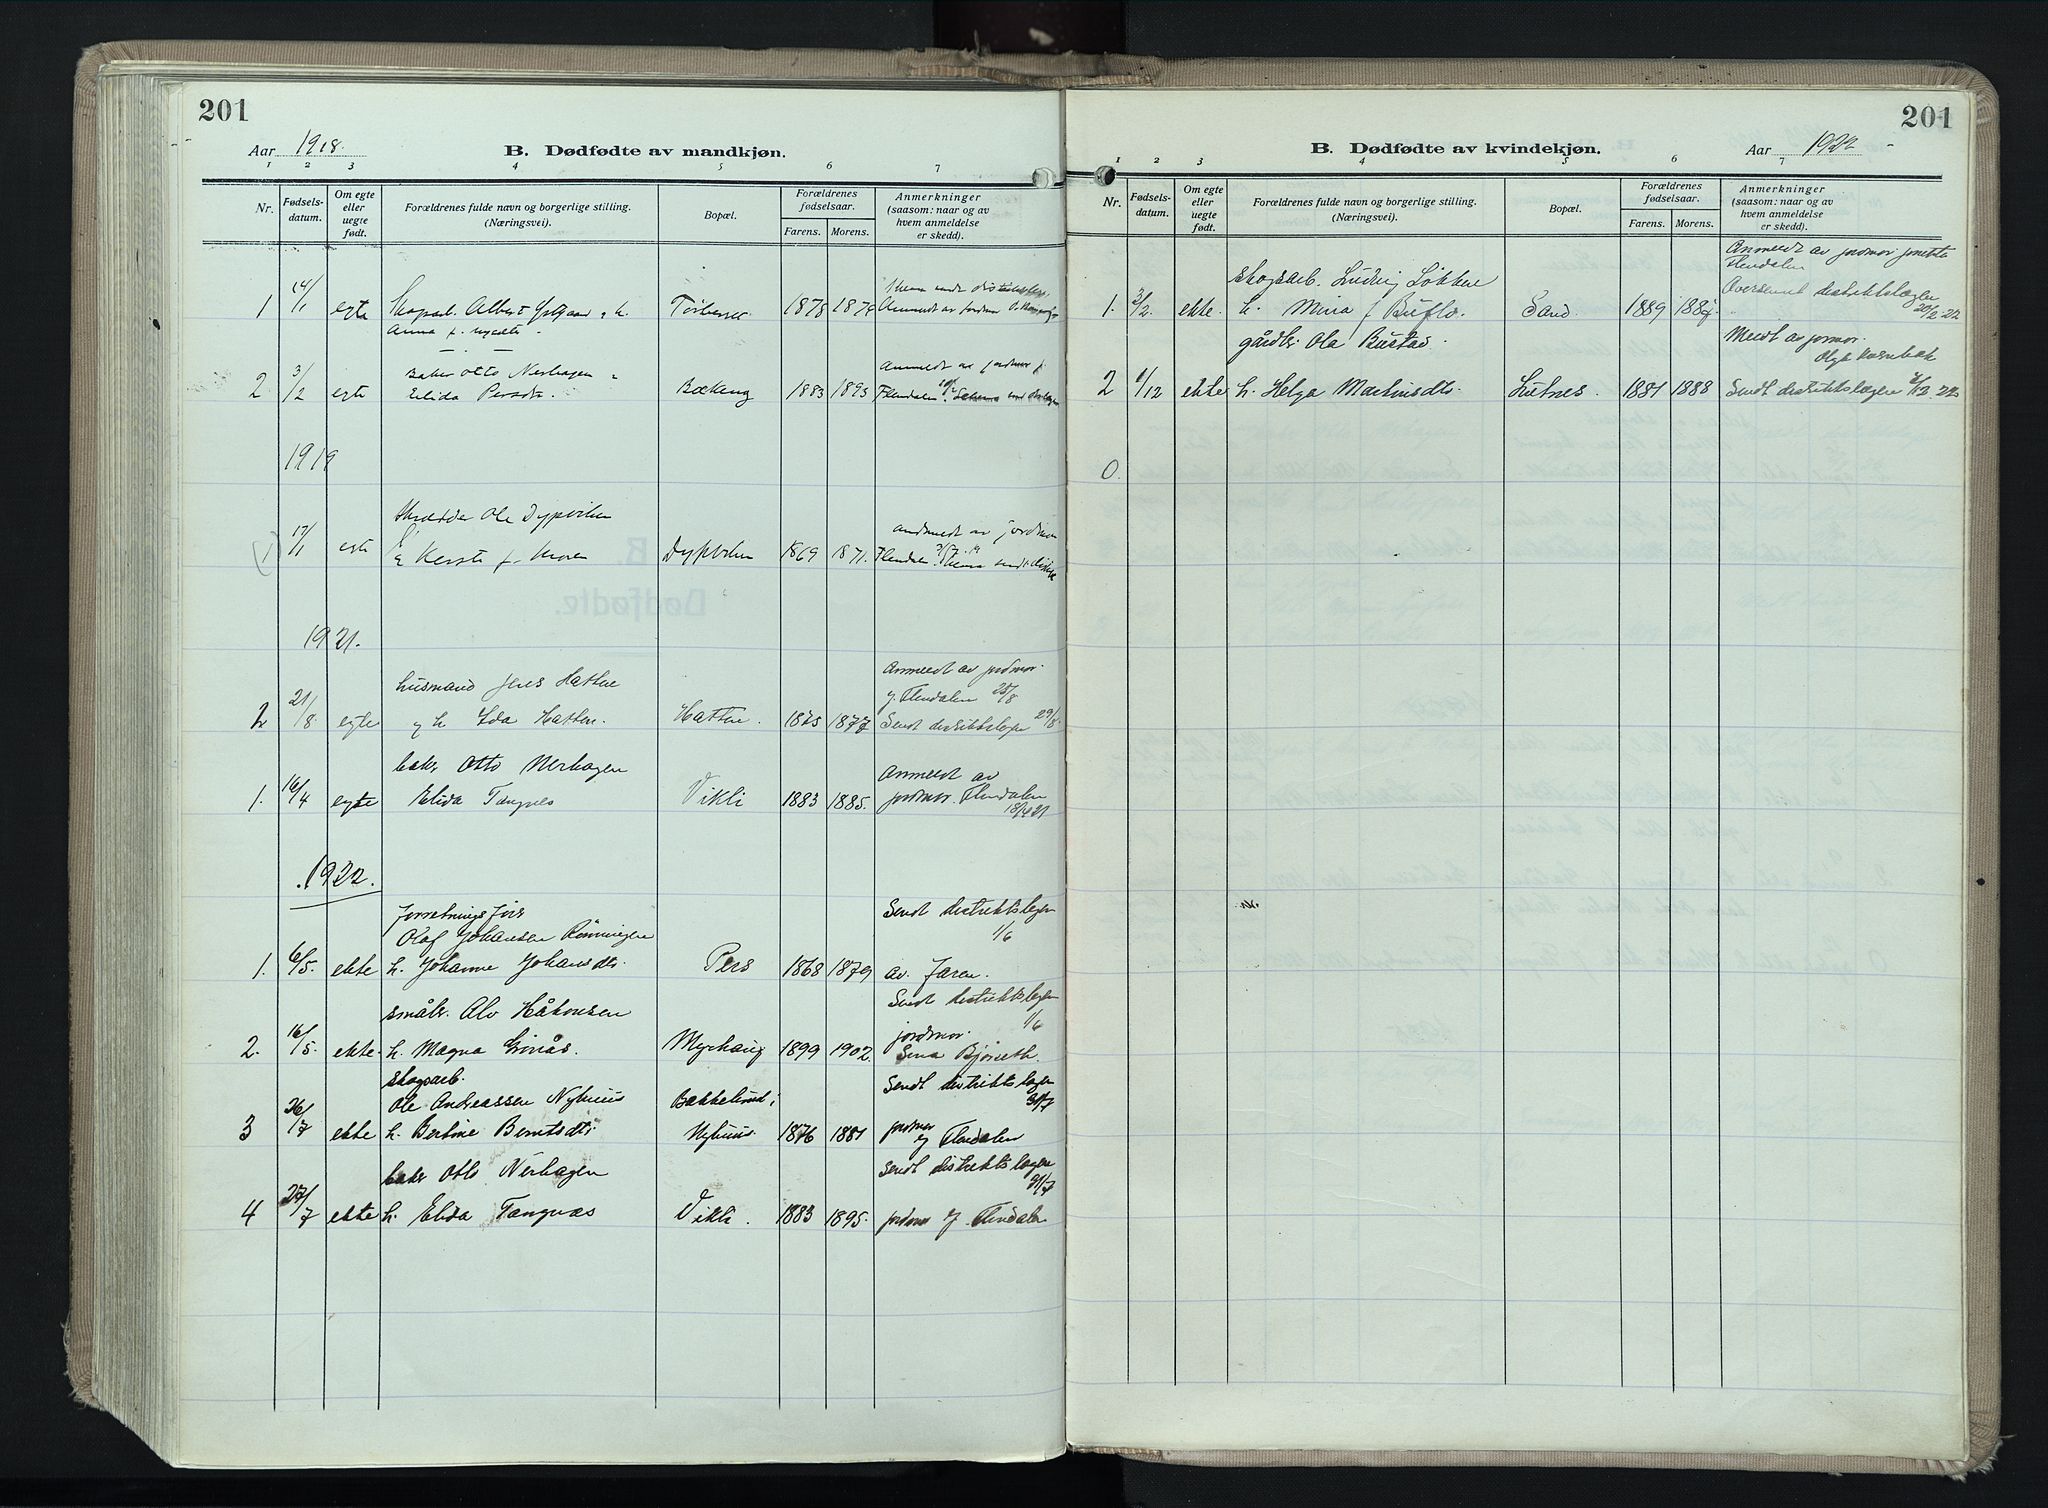 201
Aar 1918.
B. Dødfødte av mandkjøn.
1 2 3 4 5 6 7
Nr.
Fødsels-
datum.
Om egte
eller
uegte
født.
Forældrenes fulde navn og borgerlige stilling.
(Næringsvei).
Bopæl.
Forældrenes
fødselsaar.
Farens. Morens.
Anmerkninger
(saasom: naar og av
hvem anmeldelse
er skedd).
1 14/1 egte Albert 1878
Anna f.
2 3/2 egte Baker Otto Nerhagen
Elida 1883 1893
Flendalen
1919
17/1 egte Ole Dypvelen
Kersti f. Moren Dypvelen 1869 1871.
anmeldt av jordmor
Flendalen
1921.
2 21/8. egte husmand Jens Hatten
og h. Ida Hatten. Hatten. 1875 1877
Anmeldt av jordmor.
J. Flendalen 25/8
Sendt distriktslægen 29/8.
1. 16/4 egte baker Otto Nerhagen
Elida Tangnes Vikli 1883 1885.
Anmeldt av
jordmor. Flendalen
1922.
1. 6/5. ekte forretningsfører
Olaf Johansen Rønningen
h. Johanne Johansdtr. Pers 1868 1879
Sendt distriktslægen
1/6
av faren.
2. 16/5. ekte. småbr. Alv Håkonsen
h. Magna Grinås. Myrhaug 1899 1902.
Sendt distriktslægen
1/6
jordmor.
Bjørseth.
3 26/7 ekte skogsarb.
Ole Andreassen Nyhuus
h. Bertine Berntsdtr. Bakkelund i
Nyhuus. 1876 1881
Sendt distriktslægen
31/7
jordmor
J Flendalen
4 27/7 ekte baker Otto Nerhagen
h. Elida Tangnæs Vikli. 1883 1895.
Sendt distriktslægen
31/7
jordmor J. Flendalen
201
B. Dødfødte av kvindekjøn.
Aar 1922
1 2 3 4 5 6 7
Nr.
Fødsels-
datum.
Om egte
eller
uegte
født.
Forældrenes fulde navn og borgerlige stilling.
(Næringsvei).
Bopæl.
Forældrenes
fødselsaar.
Farens. Morens.
Anmerkninger
(saasom: naar og av
hvem anmeldelse
er skedd).
1. 2/2. ekte. skogsarb. Ludvig Løkken
h. Mina f. Buflo. Sand. 1889
Anmeldt av jordmor
Flendalen
Oversendt distriktslægen
20/2 22
2 1/12 ekte gårdbr. Ola Bustad.
h. Helga Martinsdtr. Lutnes. 1881 1888
Meldt av jormor.
Sendt distriktslægen
0.